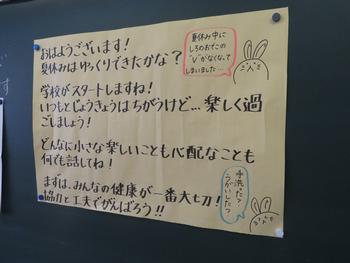 おはようございます！
夏休みはゆっくりできたかな？
夏休み中に
しろのおでこの
"V"がなくなって
しまいました…
学校がスタートしますね！
いつもとじょうきょうはちがうけど…楽しく過
ごしましょう！
どんなに小さな楽しいことも心配なことも
何でも話してね！
まずは、みんなの健康が一番大切！
協力と工夫でがんばろう!!
手洗った？
うがいした？